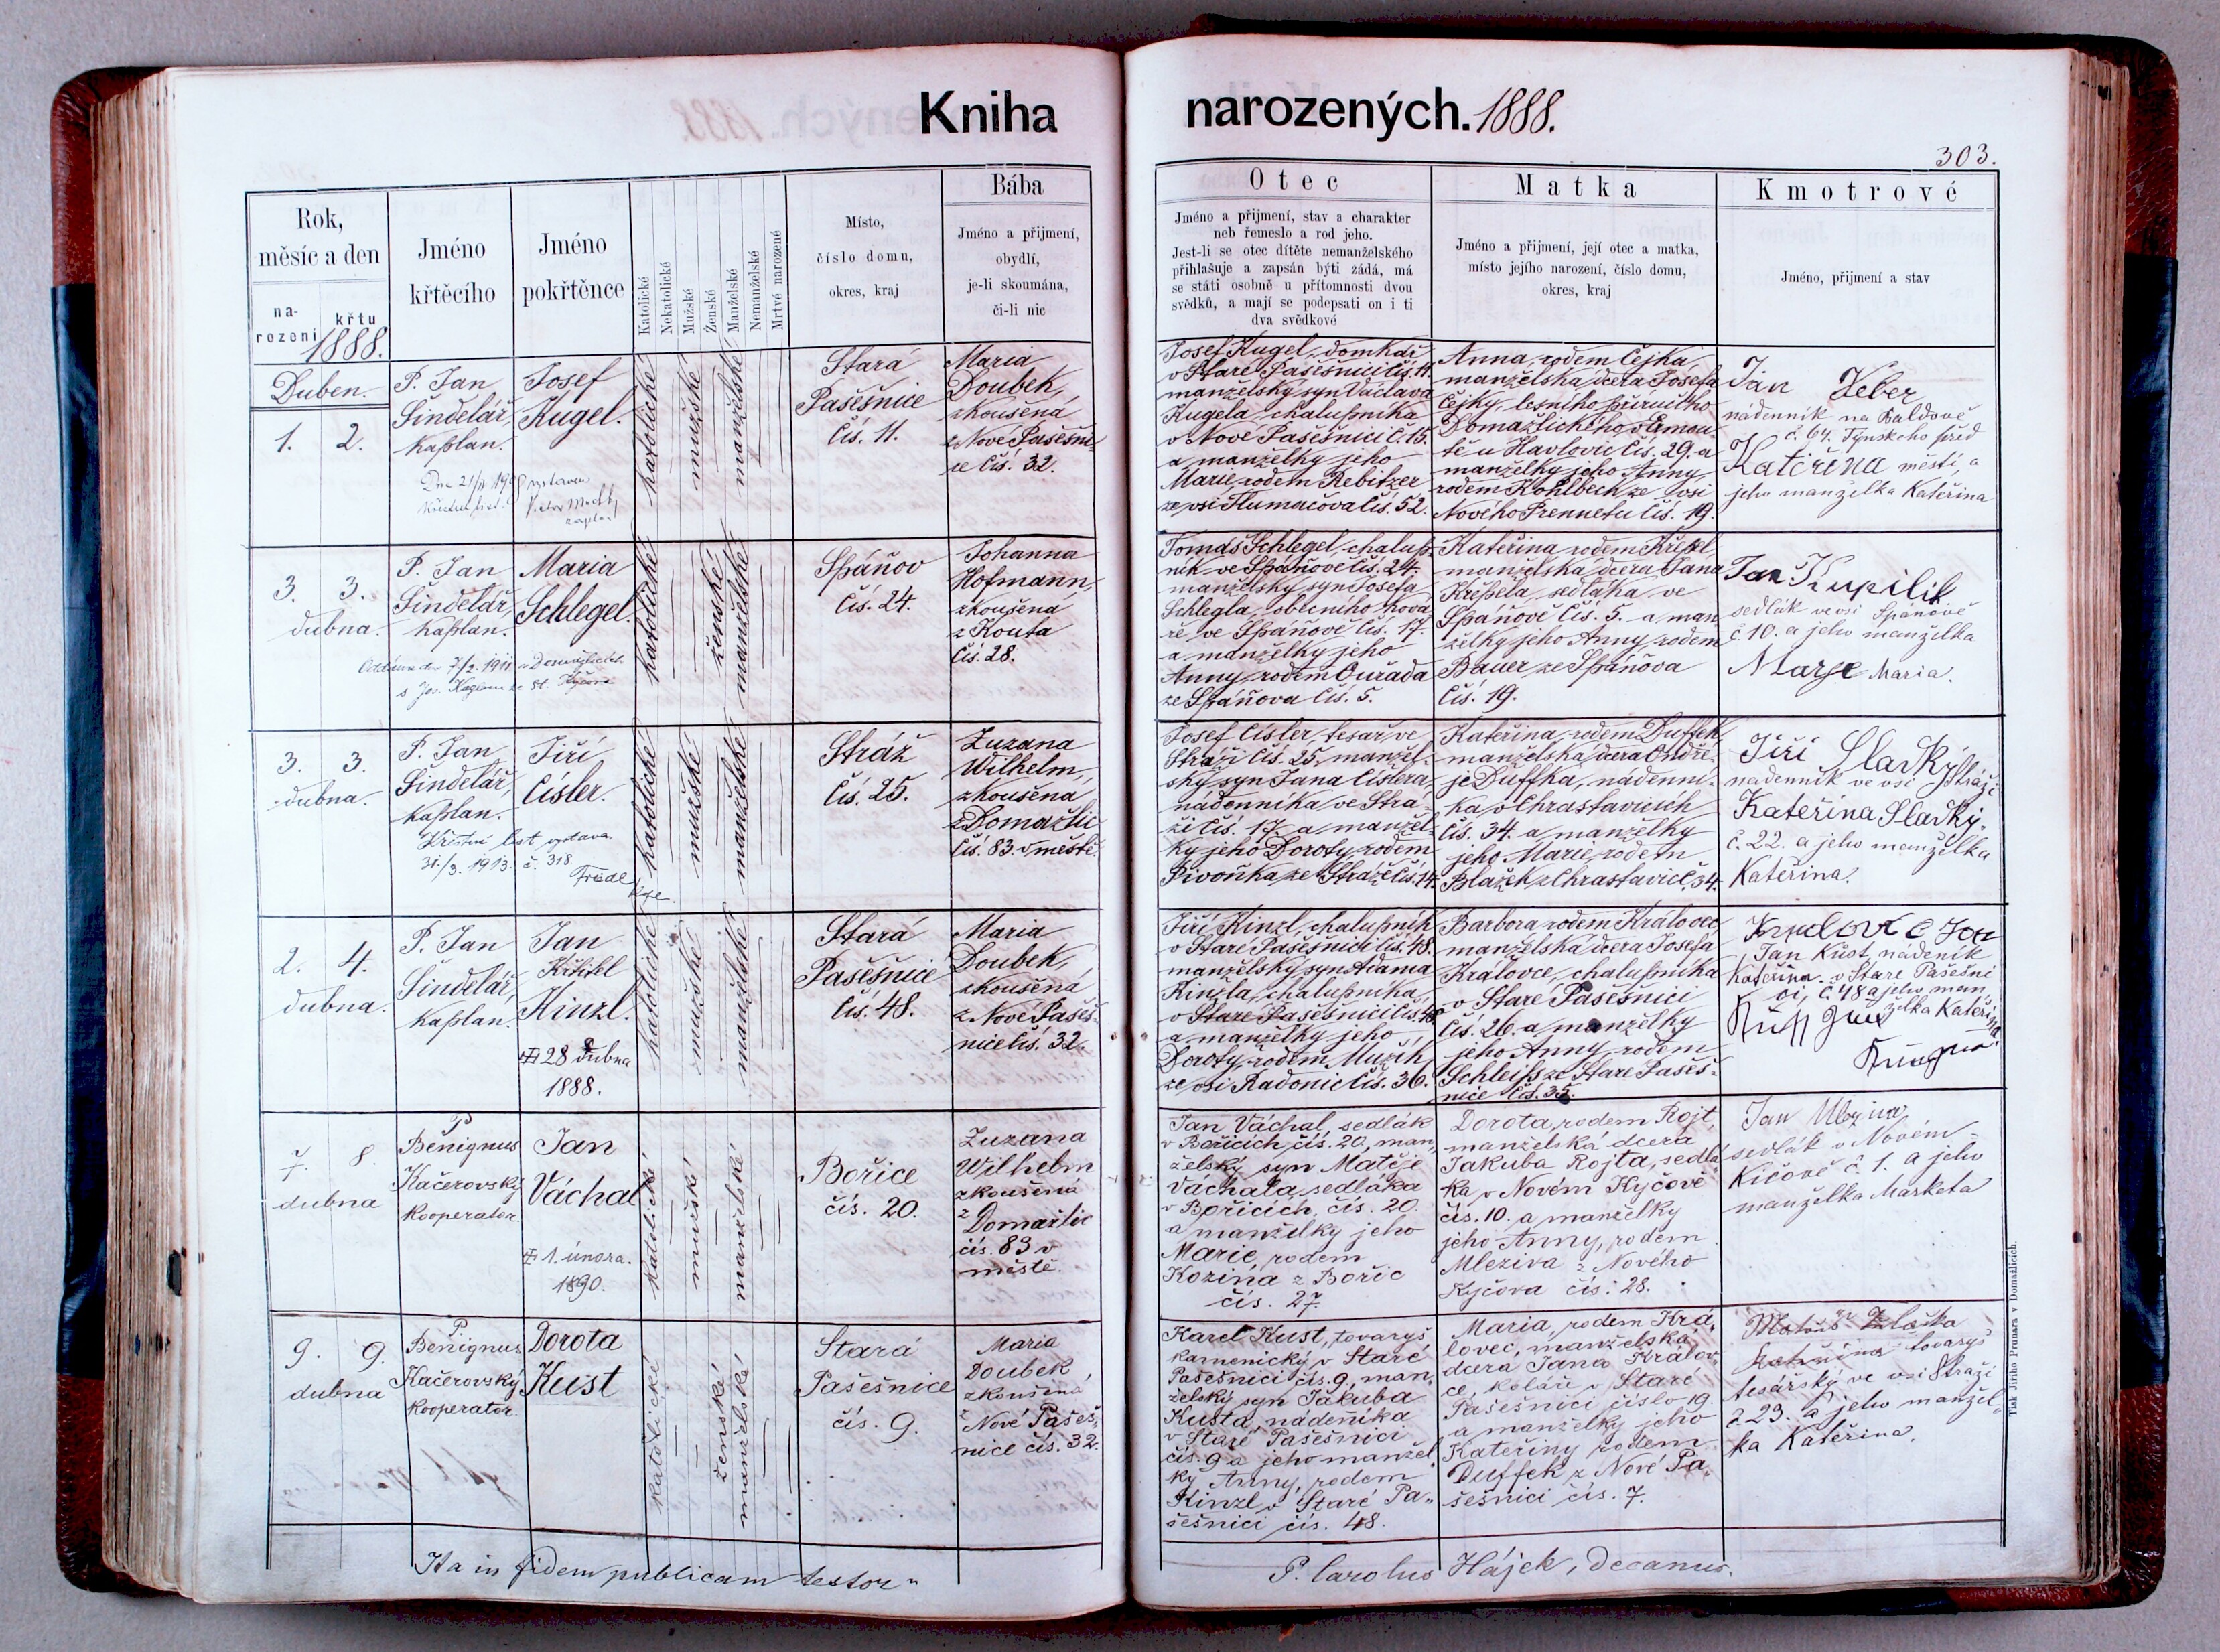 Kniha narozených. 1888.
303.
Rok,
měsíc a den
na-
rození
křtu
1888.
Jméno
křtěcího
Jméno
pokřtěnce
Katolické
Nekatolické
Mužské
Ženské
Manželské
Nemanželské
Mrtvé narozené
Místo,
číslo domu,
okres, kraj
Bába
Jméno a přijmení,
obydlí,
je-li skoumána,
či-li nic
Otec
Jméno a přijmení, stav a charakter
neb řemeslo a rod jeho.
Jest-li se otec dítěte nemanželského
přihlašuje a zapsán býti žádá, má
se státi osobně u přítomnosti dvou
svědků, a mají se podepsati on i ti
dva svědkové
Matka
Jméno a přijmení, její otec a matka,
místo jejího narození, číslo domu,
okres, kraj
Kmotrové
Jméno, přijmení a stav
Duben.
1. 2.
P. Jan
Šindelář,
kaplan.
Josef
Kugel.
katolické
mužské
manželské
Stará
Pašešnice
čís. 11.
Maria
Doubek,
zkoušená
z Nové Pašešni-
ce čís. 32.
Josef Kugel, domkář
v Staré Pašešnici čís. 11.
manželský syn Václava
Kugela, chalupníka
v Nové Pašešnici č. 15.
a manželky jeho
Marie rodem Rebitzer
ze vsi Tlumačova čís. 52.
Anna rodem Čejka
manželská dcera Josefa
Čejky, lesního příručího
Domažlického v Černou-
tě u Havlovic čís. 29. a
manželky jeho Anny
rodem Kohlbeck ze vsi
Nového Prennetu čís. 19.
Jan Veber
nádenník na Baldově
č. 64. Týnského před
Kateřina městí, a
jeho manželka Kateřina
3. 3.
dubna.
P. Jan
Šindelář,
kaplan.
Maria
Schlegel.
katolické
ženské
manželské
Spáňov
čís. 24.
Johanna
Hofmann,
zkoušená
z Kouta
čís. 28.
Tomáš Schlegel, chalup-
ník ve Spáňově čís. 24.
manželský syn Josefa
Schlegla, obecního ková-
ře ve Spáňově čís. 17.
a manželky jeho
Anny rodem Ouřada
ze Spáňova čís. 5.
Kateřina rodem Křepel,
manželská dcera Jana
Křepela, sedláka ve
Spáňově čís. 5. a man-
želky jeho Anny rodem
Bauer ze Spáňova
čís. 19.
Jan Kupilik
sedlák ve vsi Spánově
č. 10. a jeho manželka
Marje Maria.
3. 3.
dubna.
P. Jan
Šindelář,
kaplan.
Jiří
Císler.
Křestní list vystaven
31./3. 1913. č. 318
katolické
mužské
manželské
Stráž
čís. 25.
Zuzana
Wilhelm,
zkoušená
z Domažlic
čís. 83 v městě.
Josef Císler, tesař ve
Stráži čís. 25, manžel-
ský syn Jana Císlera,
nádenníka ve Strá-
ži čís. 17. a manžel-
ky jeho Doroty rodem
Pivoňka ze Stráže čís. 14.
Kateřina, rodem Duffek,
manželská dcera Ondře-
je Duffka, nádenní-
ka v Chrastavicích
čís. 34. a manželky
jeho Marie rodem
Blažek z Chrastavic č. 34.
Jiří Sladký
nadenník ve vsi Stráži
Kateřina Sladký.
č. 22. a jeho manželka
Kateřina.
2. 4.
dubna.
P. Jan
Šindelář,
kaplan.
Jan
Křtitel
Kinzl.
28 dubna
1888.
katolické
mužské
manželské
Stará
Pašešnice
čís. 48.
Maria
Doubek,
zkoušená
z Nové Pašeš-
nice čís. 32.
Jiří Kinzl, chalupník
v Staré Pašešnici čís. 48.
manželský syn Adama
Kinzla, chalupníka
v Staré Pašešnici čís. 48.
a manželky jeho
Doroty rodem Mužík,
ze vsi Radonic čís. 36.
Barbora rodem Královec,
manželská dcera Josefa
Královce, chalupníka
v Staré Pašešnici
čís. 26. a manželky
jeho Anny rodem
Schleiss ze Staré Pašeš-
nice čís. 35.
Jan Kust, nádeník
Kateřina. v Staré Pašešni
ci, č. 48 a jeho man
želka Kateřina.
7. 8.
dubna
P.
Benignus
Kačerovský
kooperator.
Jan
Váchal
1. února.
1890.
katolické
mužské
manželské
Bořice
čís. 20.
Zuzana
Wilhelm
zkoušená
z
Domažlic
čís. 83 v
městě.
Jan Váchal, sedlák
v Bořicích, čís. 20, man-
želský syn Matěje
Váchala, sedláka
v Bořicích, čís. 20.
a manželky jeho
Marie, rodem
Kozina z Bořic
čís. 27.
Dorota, rodem Rojt,
manželská dcera
Jakuba Rojta, sedlá-
ka v Novém Kyčově
čís. 10. a manželky
jeho Anny, rodem
Mleziva z Nového
Kyčova čís. 28.
Jan
sedlák v Novém
Kičově č. 1. a jeho
manželka Marketa
9. 9.
dubna
P.
Benignus
Kačerovský
kooperator.
Dorota
Kust
katolické
ženské
manželské
Stará
Pašešnice
čís. 9.
Maria
Doubek
zkoušená
z
Nové Pašeš-
nice čís. 32.
Karel Kust, tovaryš
kamenický v Staré
Pašešnici čís. 9, man-
želský syn Jakuba
Kusta, nádeníka
v Staré Pašešnici
čís. 9 a jeho manžel
ky Anny, rodem
Kinzl v Staré Pa-
šešnici čís. 48.
Maria, rodem Krá-
lovec, manželská
dcera Jana Králov-
ce, koláře v Staré
Pašešnici číslo 19.
a manželky jeho
Kateřiny rodem
Duffek z Nové Pa-
šešnici čís. 7.
tovaryš
tesářský ve vsi Stráži
č. 23. a jeho manžel-
ka Kateřina.
Ita in fidem publicam testor
P. Carolus Hájek, decanus.
Tisk Jiřího Prunara v Domažlicích.